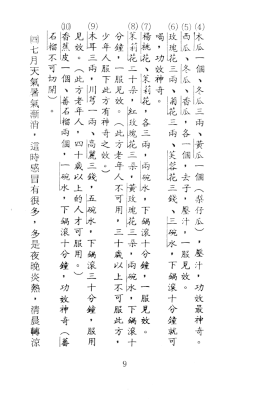 (4)木瓜一個、冬瓜三兩、黃瓜一個(梨仔瓜)，壓汁，功效最神奇。
(5)西瓜、冬瓜、香瓜，各一個，去子，壓汁，一服見效。
(6)玫瑰花三兩、菊花三兩、芙蓉花三錢、三碗水，下鍋滾十分鐘就可
喝，功效神奇。
(7)楊桃花、茉莉花，各三兩，兩碗水，下鍋滾十分鐘，一服見效。
(8)茉莉花二十朵，紅玫瑰花三朵，黃玫瑰花三朵，兩碗水，下鍋滾十
分鐘，一服見效。(此方老年人不可用，三十歲以上不可服此方，
少年人服下此方有神奇之效。)
(9)木耳三兩，川芎一兩、高麗三錢，五碗水，下鍋滾三十分鐘，服用
見效。(此方老年人，四十歲以上的人才可服用。)
(10)香蕉皮一個、蕃石榴兩個，一碗水，下鍋滾十分鐘，功效神奇(蕃
石榴不可切開)。
四七月天氣暑氣漸消，這時感冒有很多，多是夜晚炎熱，清晨轉涼
9